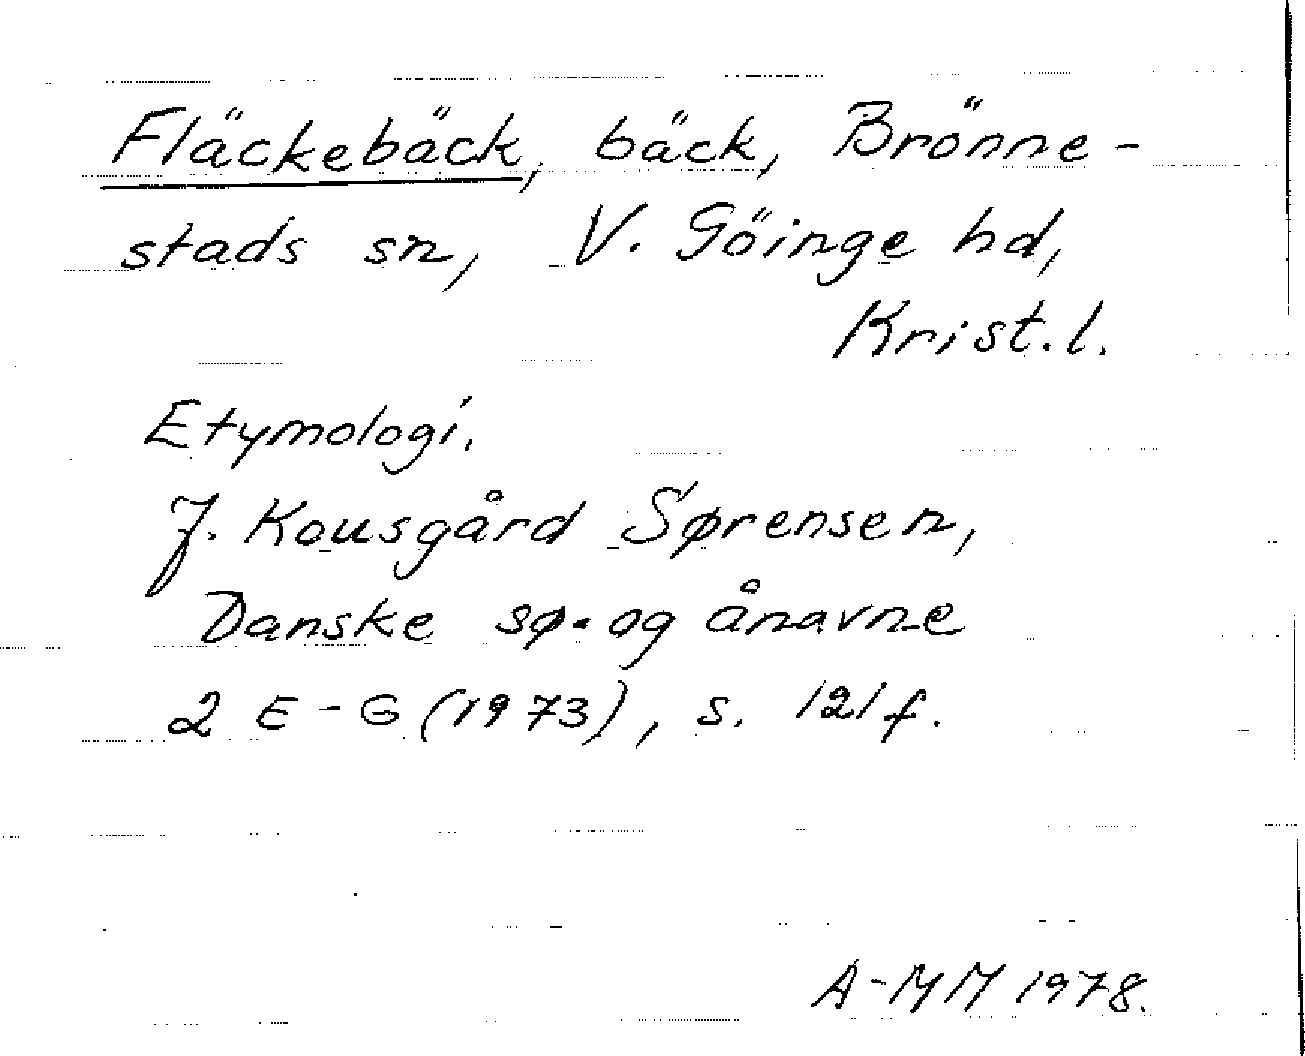 Fläckebäck, bäck, Brönne-
stads sn, V. Göinge hd,
Krist.l.
Etymologi.
J. Kousgård Sørensen,
Danske sø- og ånavne
2 E-G (1973), s. 121 f.
A-MM 1978.